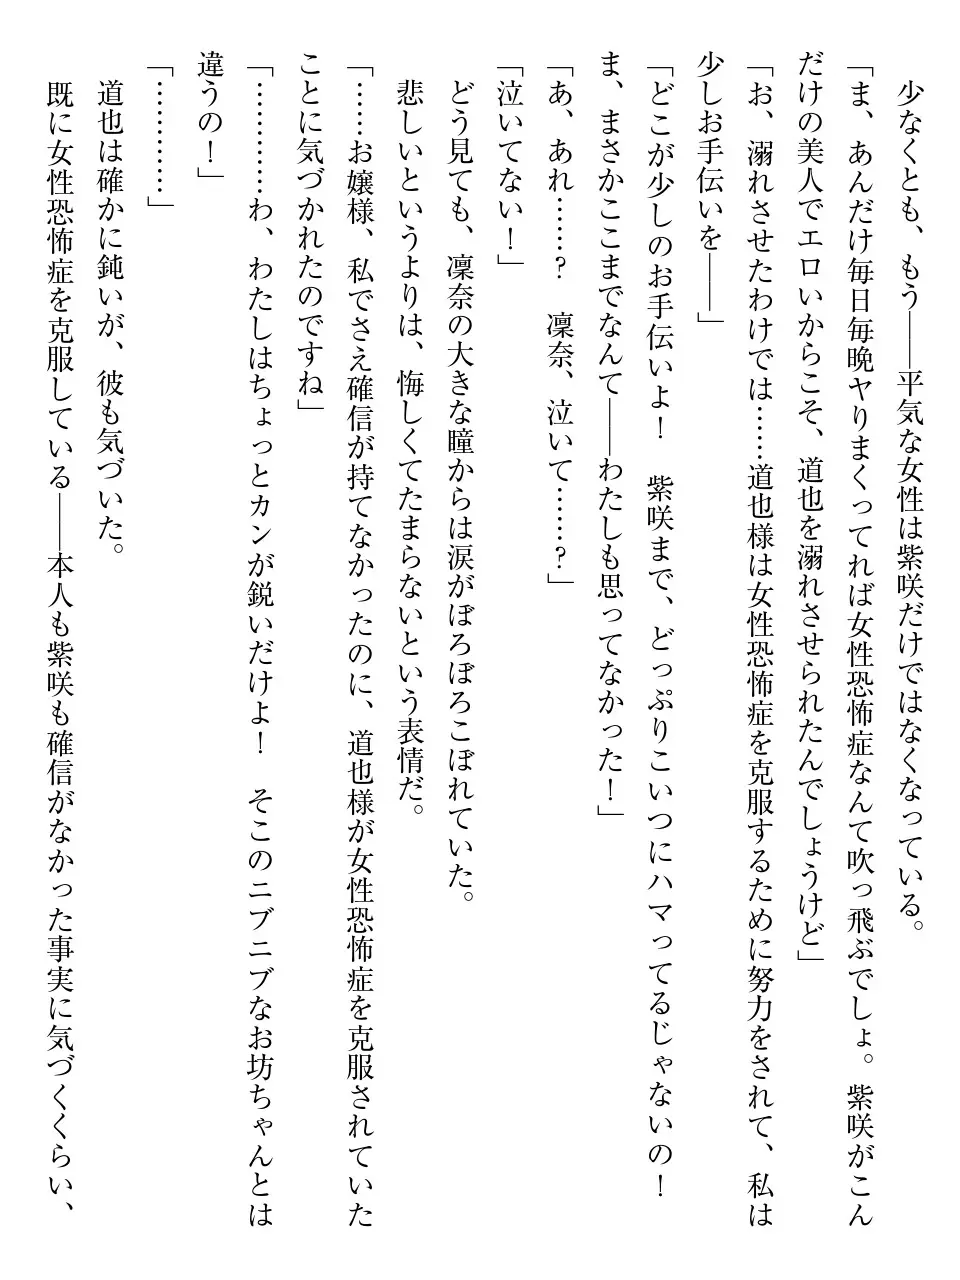 少なくとも、もう――平気な女性は紫咲だけではなくなっている。
「ま、あんだけ毎日毎晩ヤりまくってれば女性恐怖症なんて吹っ飛ぶでしょ。紫咲がこん
だけの美人でエロいからこそ、道也を溺れさせられたんでしょうけど」
「お、溺れさせたわけでは……道也様は女性恐怖症を克服するために努力をされて、私は
少しお手伝いを――」
「どこが少しのお手伝いよ！　紫咲まで、どっぷりこいつにハマってるじゃないの！
ま、まさかここまでなんて――わたしも思ってなかった！」
「あ、あれ……？　凜奈、泣いて……？」
「泣いてない！」
どう見ても、凜奈の大きな瞳からは涙がぼろぼろこぼれていた。
悲しいというよりは、悔しくてたまらないという表情だ。
「……お嬢様、私でさえ確信が持てなかったのに、道也様が女性恐怖症を克服されていた
ことに気づかれたのですね」
「…………わ、わたしはちょっとカンが鋭いだけよ！　そこのニブニブなお坊ちゃんとは
違うの！」
「…………」
道也は確かに鈍いが、彼も気づいた。
既に女性恐怖症を克服している――本人も紫咲も確信がなかった事実に気づくくらい、